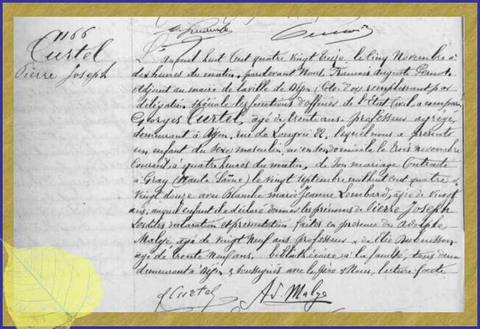 1166
Curtel
Pierre Joseph
L'an mil huit cent quatre vingt treize, le cinq Novembre à
dix heures du matin, pardevant Nous, François August
adjoint au maire de la ville de Dijon (Côte d'Or) remplissant par
délégation spéciale les fonctions d'officier de l'État Civil, a comparu
Georges Curtel, agé de trente ans, professeur agrégé,
demeurant à Dijon, rue de Longvic 22, lequel nous a présenté
un enfant du sexe masculin, né en son domicile le trois novembre
courant à quatre heures du matin, de son mariage contracté
à Gray (Haute Saône) le vingt Septembre mil huit cent quatre
vingt douze avec Blanche Marie Jeanne Lombard, agée de vingt
ans, auquel enfant il a déclaré donner les prénoms de Pierre Joseph
Lesdites déclaration et présentation faites en présence de Adolphe
Malye, agé de vingt neuf ans, professeur & de Elie
agé de trente neuf ans, bibliothécaire à la faculté, tous deux
demeurant à Dijon & soussignés avec le père & Nous, lecture faite.
G Curtel
Ad. Malye